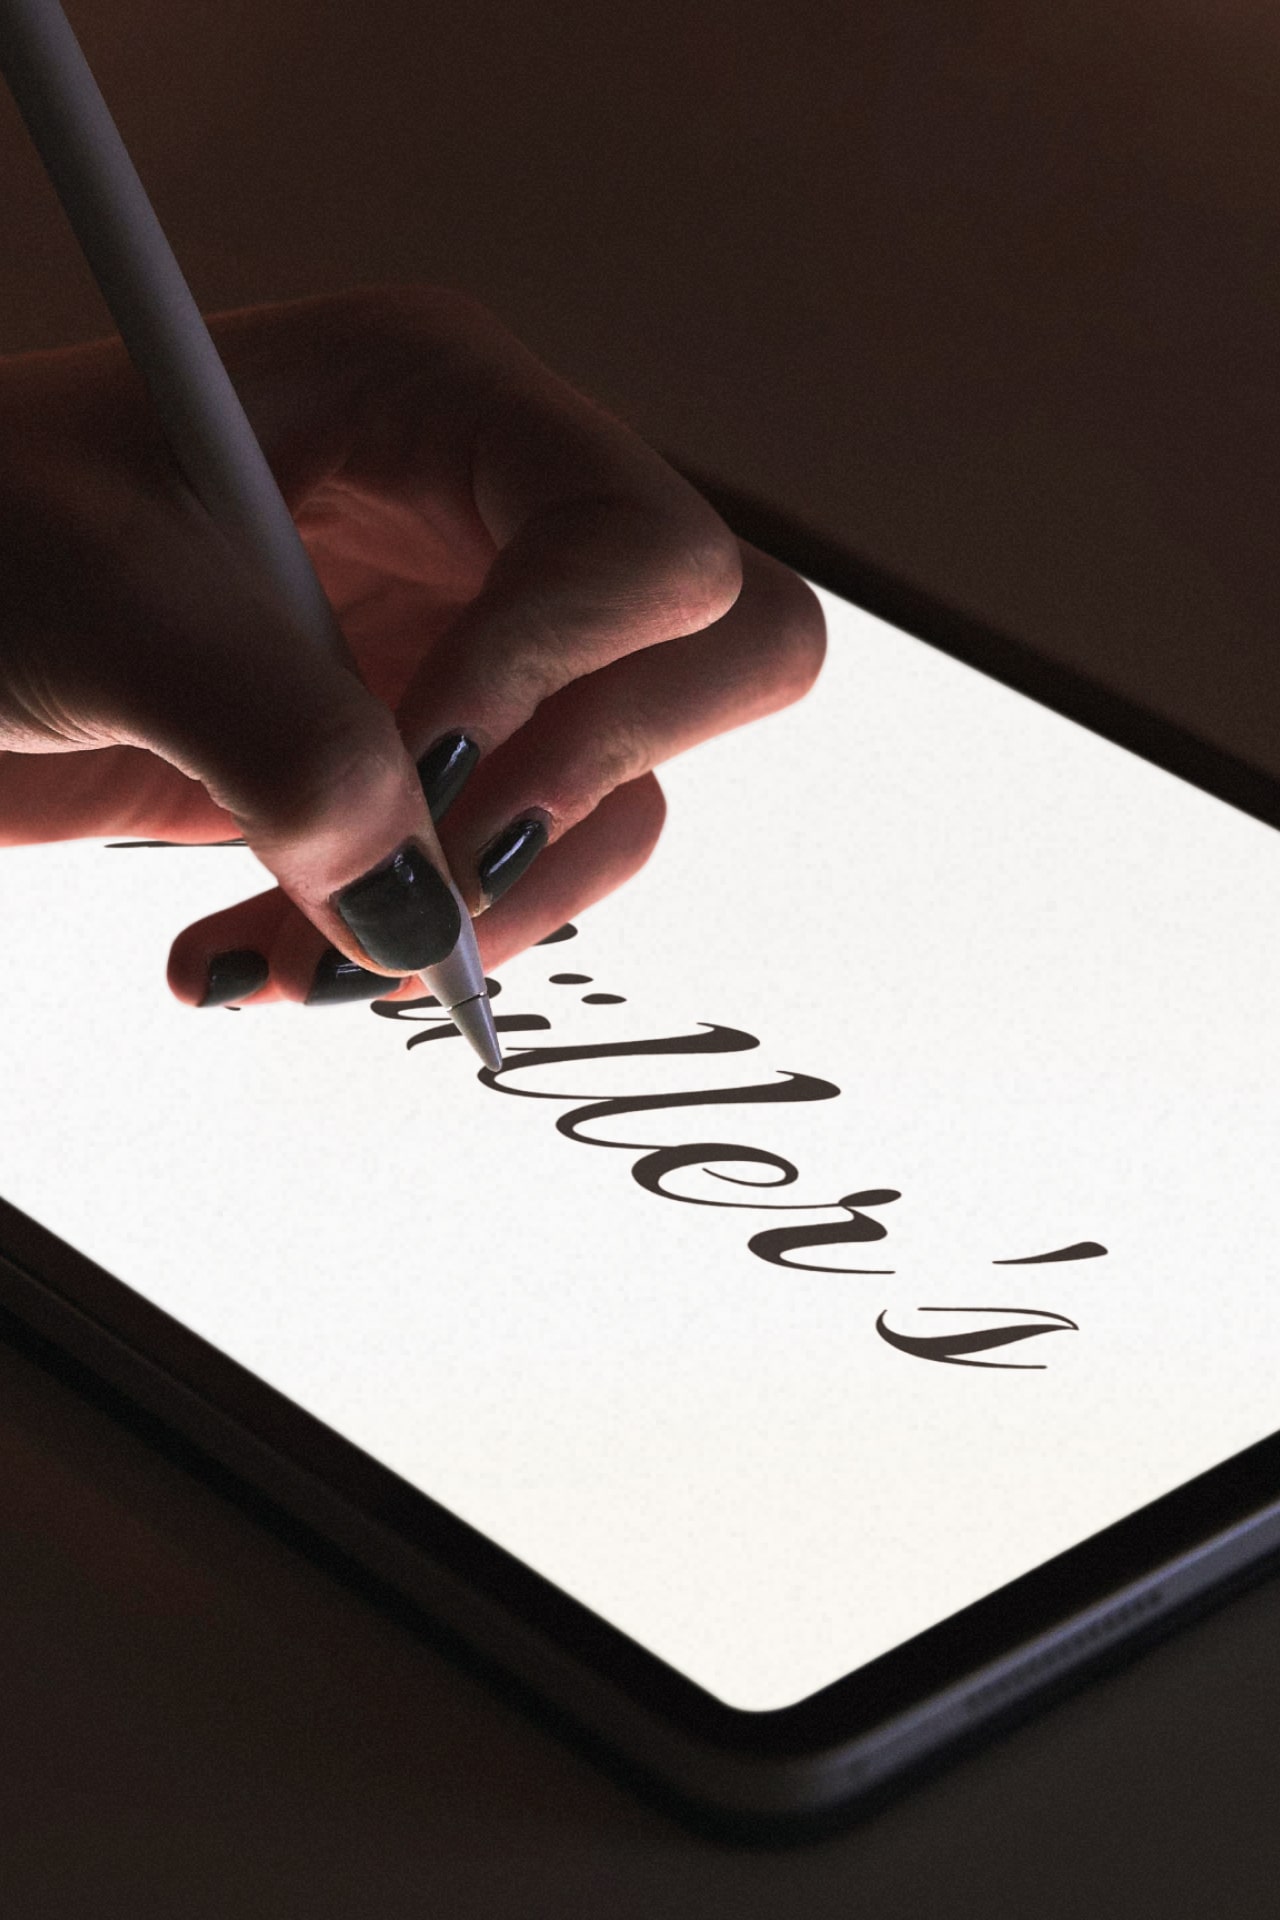 üller's